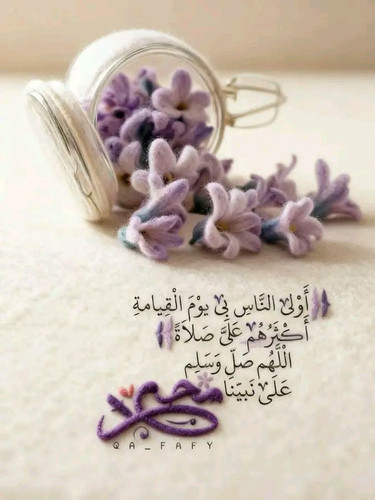 أَوْلَى النَّاسِ بِي يوْمَ الْقِيامةِ
أَكْثَرُهُم عَلَيَّ صَلاَةً
اللَّهُم صَلِّ وَسَلِم
عَلَى نَبيّنا
محمد
QA_FAFY